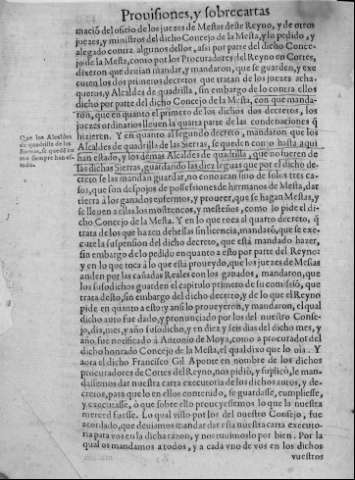 Prouisiones, y sobrecartas
macio del oficio de los juezes de Mestas deste Reyno, y de otros
juezes, y ministros del dicho Concejo de la Mesta, y lo pedido, y
alegado contra algunos dellos, assi por parte del dicho Conce-
jo de la Mesta, como por los Procuradores del Reyno en Cortes,
dixeron que deuian mandar, y mandaron, que se guarden, y exe
cuten los dos primeros decretos que tratan de los juezes acha-
queros, y Alcaldes de quadrilla, sin embargo de lo contra ellos
dicho por parte del dicho Concejo de la Mesta, con que manda-
ron, que en quanto el primero de los dichos dos decretos, los
juezes ordinarios lleuen la quarta parte de las condenaciones q̃
hizieren. Y en quanto al segundo decreto, mandaron que los
Alcaldes de quadrilla de las Sierras, se queden como hasta aqui
han estado, y los demas Alcaldes de quadrilla, que no fueren de
las dichas Sierras, guardando las diez leguas que por el dicho de-
creto se les mandan guardar, no conozcan sino de solos tres ca-
sos, que son despojos de possessiones de hermanos de Mesta, dar
tierra à los ganados enfermos, y proueer, que se hagan Mestas, y
se lleuen a ellas los mostrencos, y mesteños, como lo pide el di-
cho Concejo de la Mesta. Y en lo que toca al quarto decreto, q̃
trata de los que hazen dehessas sin licencia, mandarō, que se exe-
cute la suspension del dicho decreto, que està mandado hazer,
sin embargo de lo pedido en quanto a esto por parte del Reyno:
y en lo que toca à lo que està proueydo, que los juezes de Mestas
anden por las cañadas Reales con los ganados, mandaron, que
los susodichos guarden el capitulo primero de su comissiō, que
trata desto, sin embargo del dicho decreto, y de lo que el Reyno
pide en quanto a esto y ansi lo proueyeron, y mandaron, el qual
dicho auto fue dado, y pronunciado por los del nuestro Conse-
jo, dia, mes, y año susodicho, y en diez y seis dias del dicho mes, y
año, fue notificado à Antonio de Moya, como a procurador del
dicho honrado Concejo de la Mesta, el qual dixo que lo oia. Y
aora el dicho Francisco Gil Aponte en nombre de los dichos
procuradores de Cortes del Reyno, nos pidiò, y suplicò, le man-
dassemos dar nuestra carta executoria de los dichos autos, y de-
cretos, para que lo en ellos contenido, se guardasse, cumpliesse,
y executasse, ò que sobre ello proueyessemos lo que la nuestra
merced fuesse. Lo qual visto por los del nuestro Consejo, fue
acordado, que deuiamos mandar dar esta nuestra carta execu-
toria para vos en la dicha razon, y nos tuuimoslo por bien. Por la
qual os mandamos a todos, y a cada vno de vos en los dichos
vuestros
Que los Alcaldes
de quadrilla de las
Sierras, se queden co
mo siempre han es-
tado.